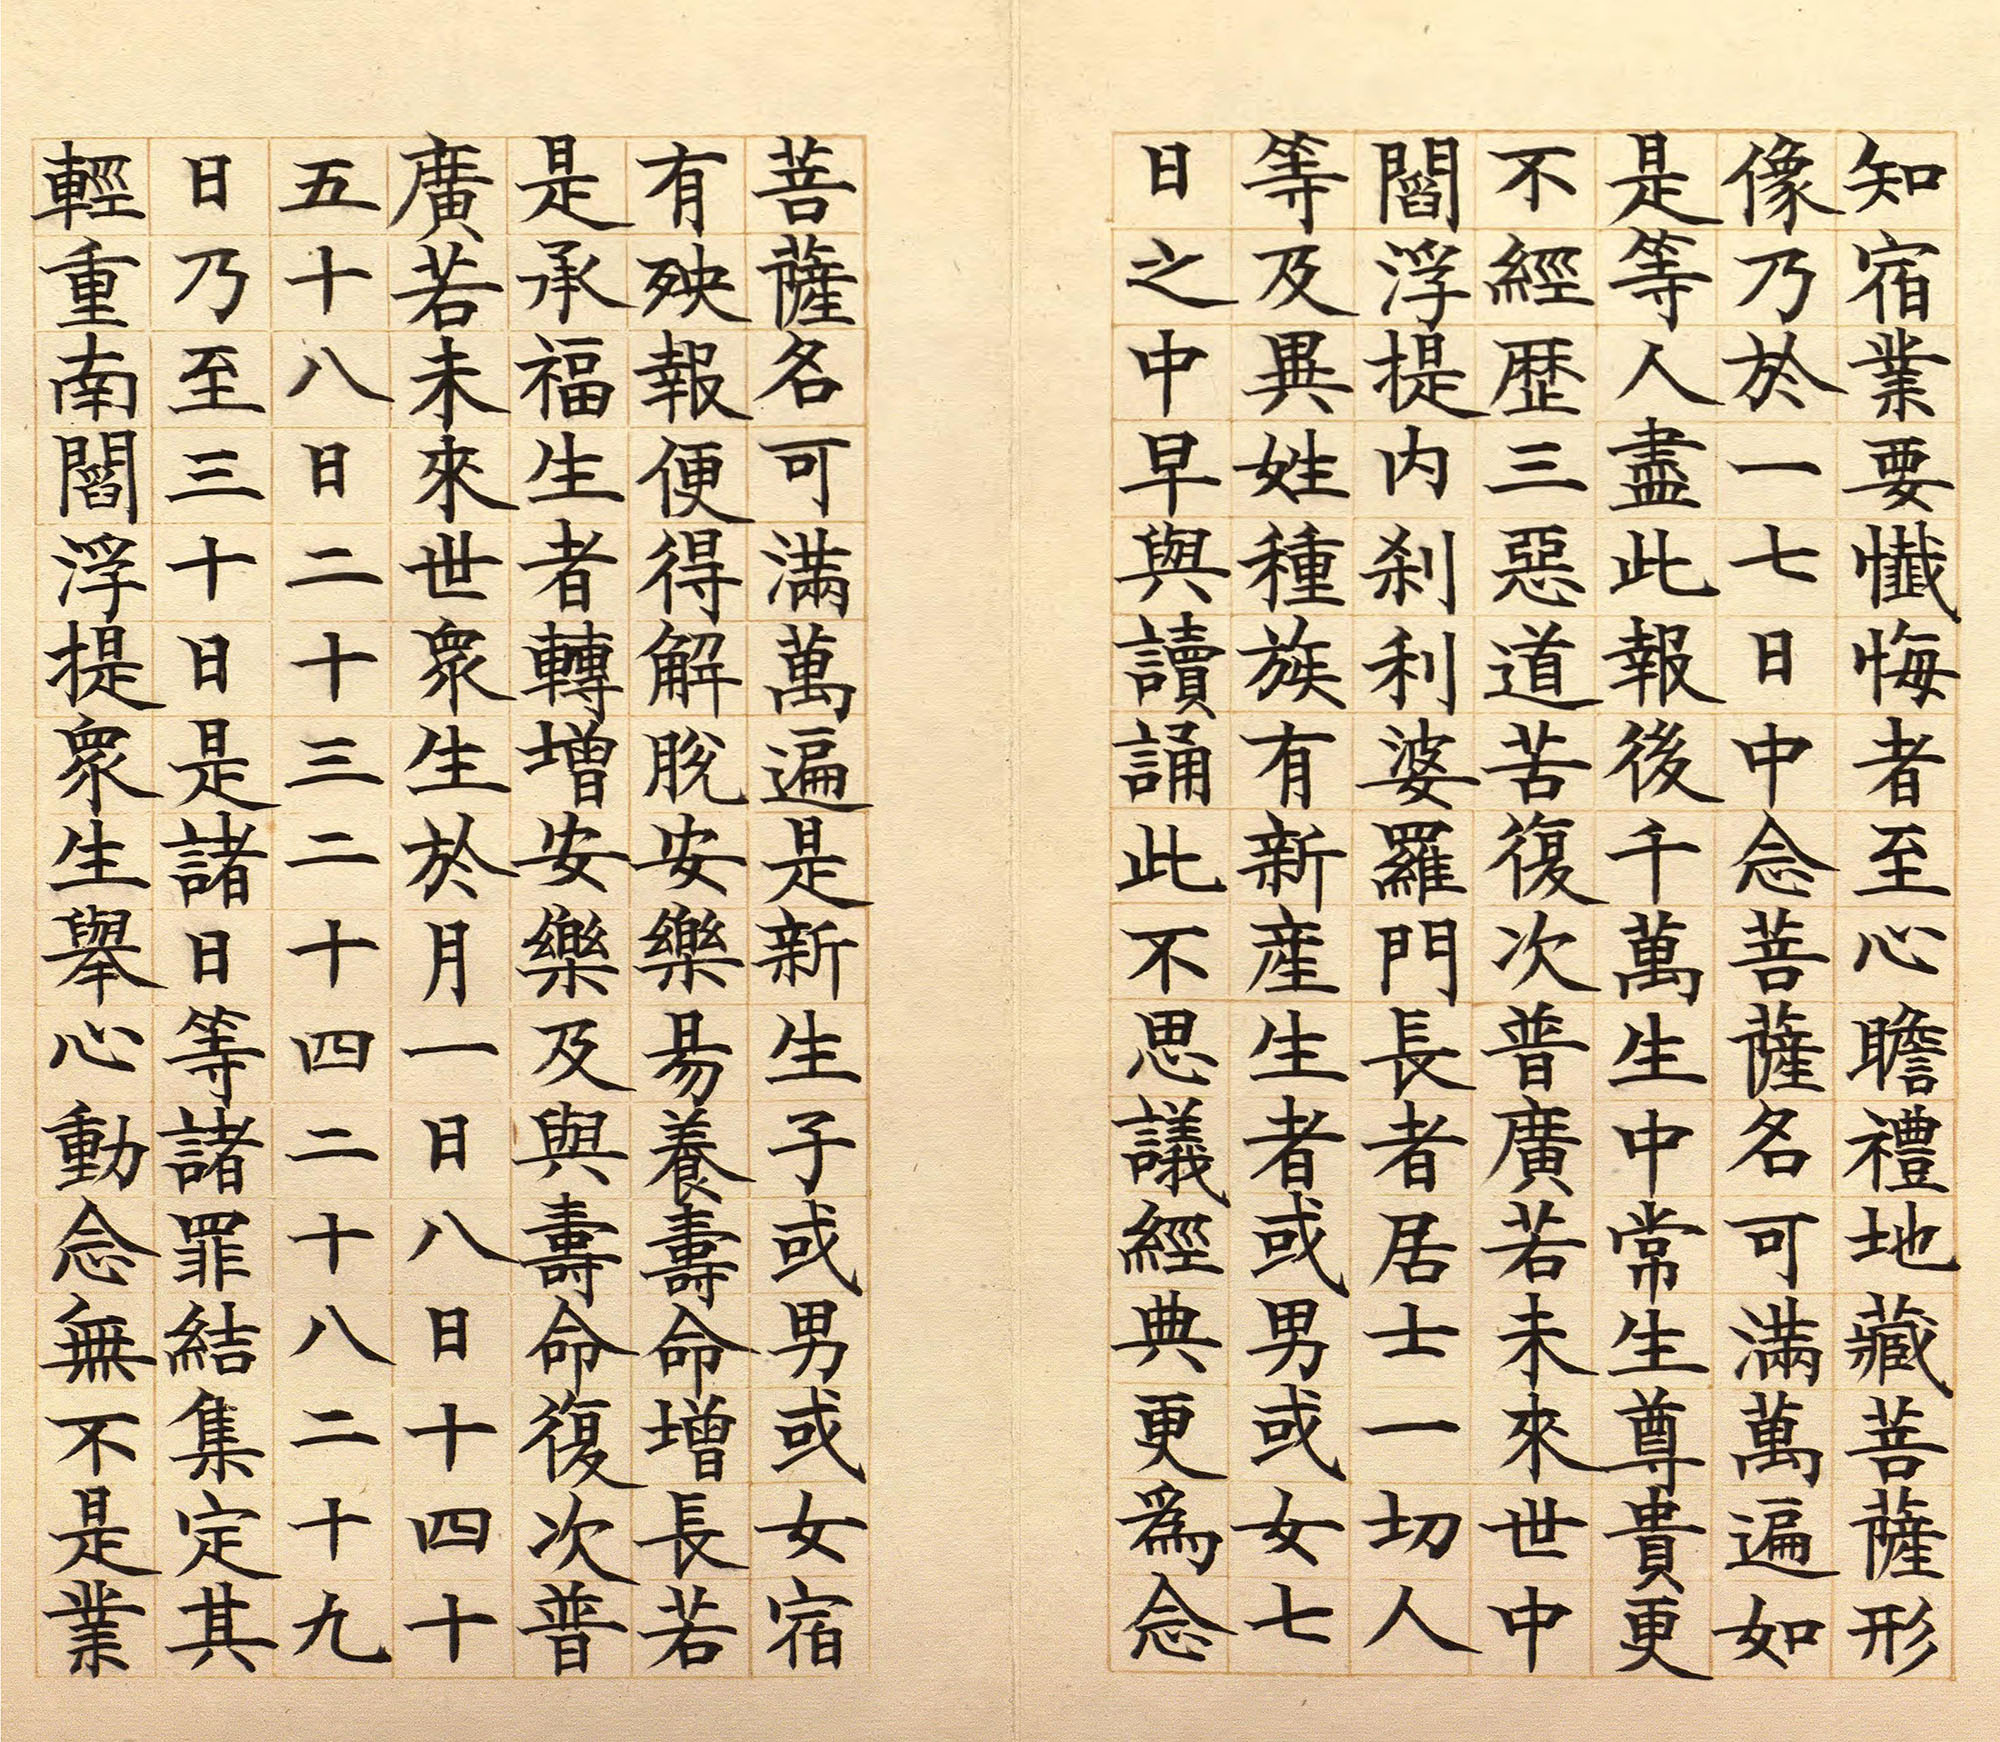 知宿業要懺悔者至心瞻禮地藏菩薩形
像乃於一七日中念菩薩名可滿萬遍如
是等人盡此報後千萬生中常生尊貴更
不經歷三惡道苦復次普廣若未來世中
閻浮提内刹利婆羅門長者居士一切人
等及異姓種族有新產生者或男或女七
日之中早與讀誦此不思議經典更為念
菩薩名可滿萬遍是新生子或男或女宿
有殃報便得解脫安樂易養壽命增長若
是承福生者轉增安樂及與壽命復次普
廣若未來世眾生於月一日八日十四十
五十八日二十三二十四二十八二十九
日乃至三十日是諸日等諸罪結集定其
輕重南閻浮提眾生舉心動念無不是業